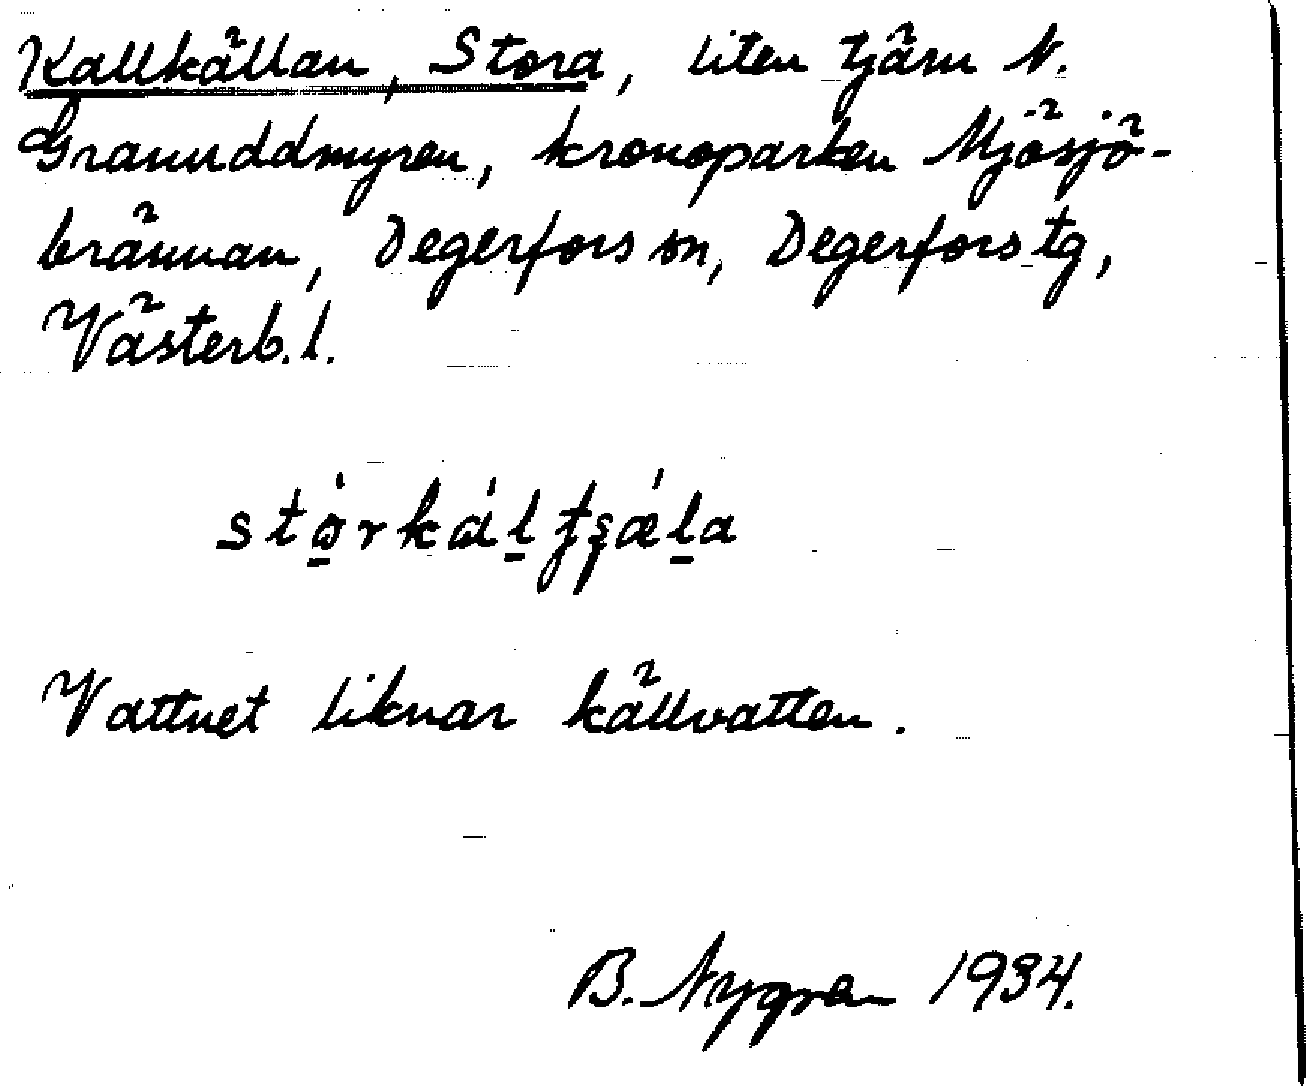 Kallkällan, Stora, liten tjärn N.
Granuddmyren, kronoparken Mjösjö-
brännan, Degerfors sn, Degerfors tg,
Västerb. l.
Vattnet liknar källvatten.
B. Nygren 1934.